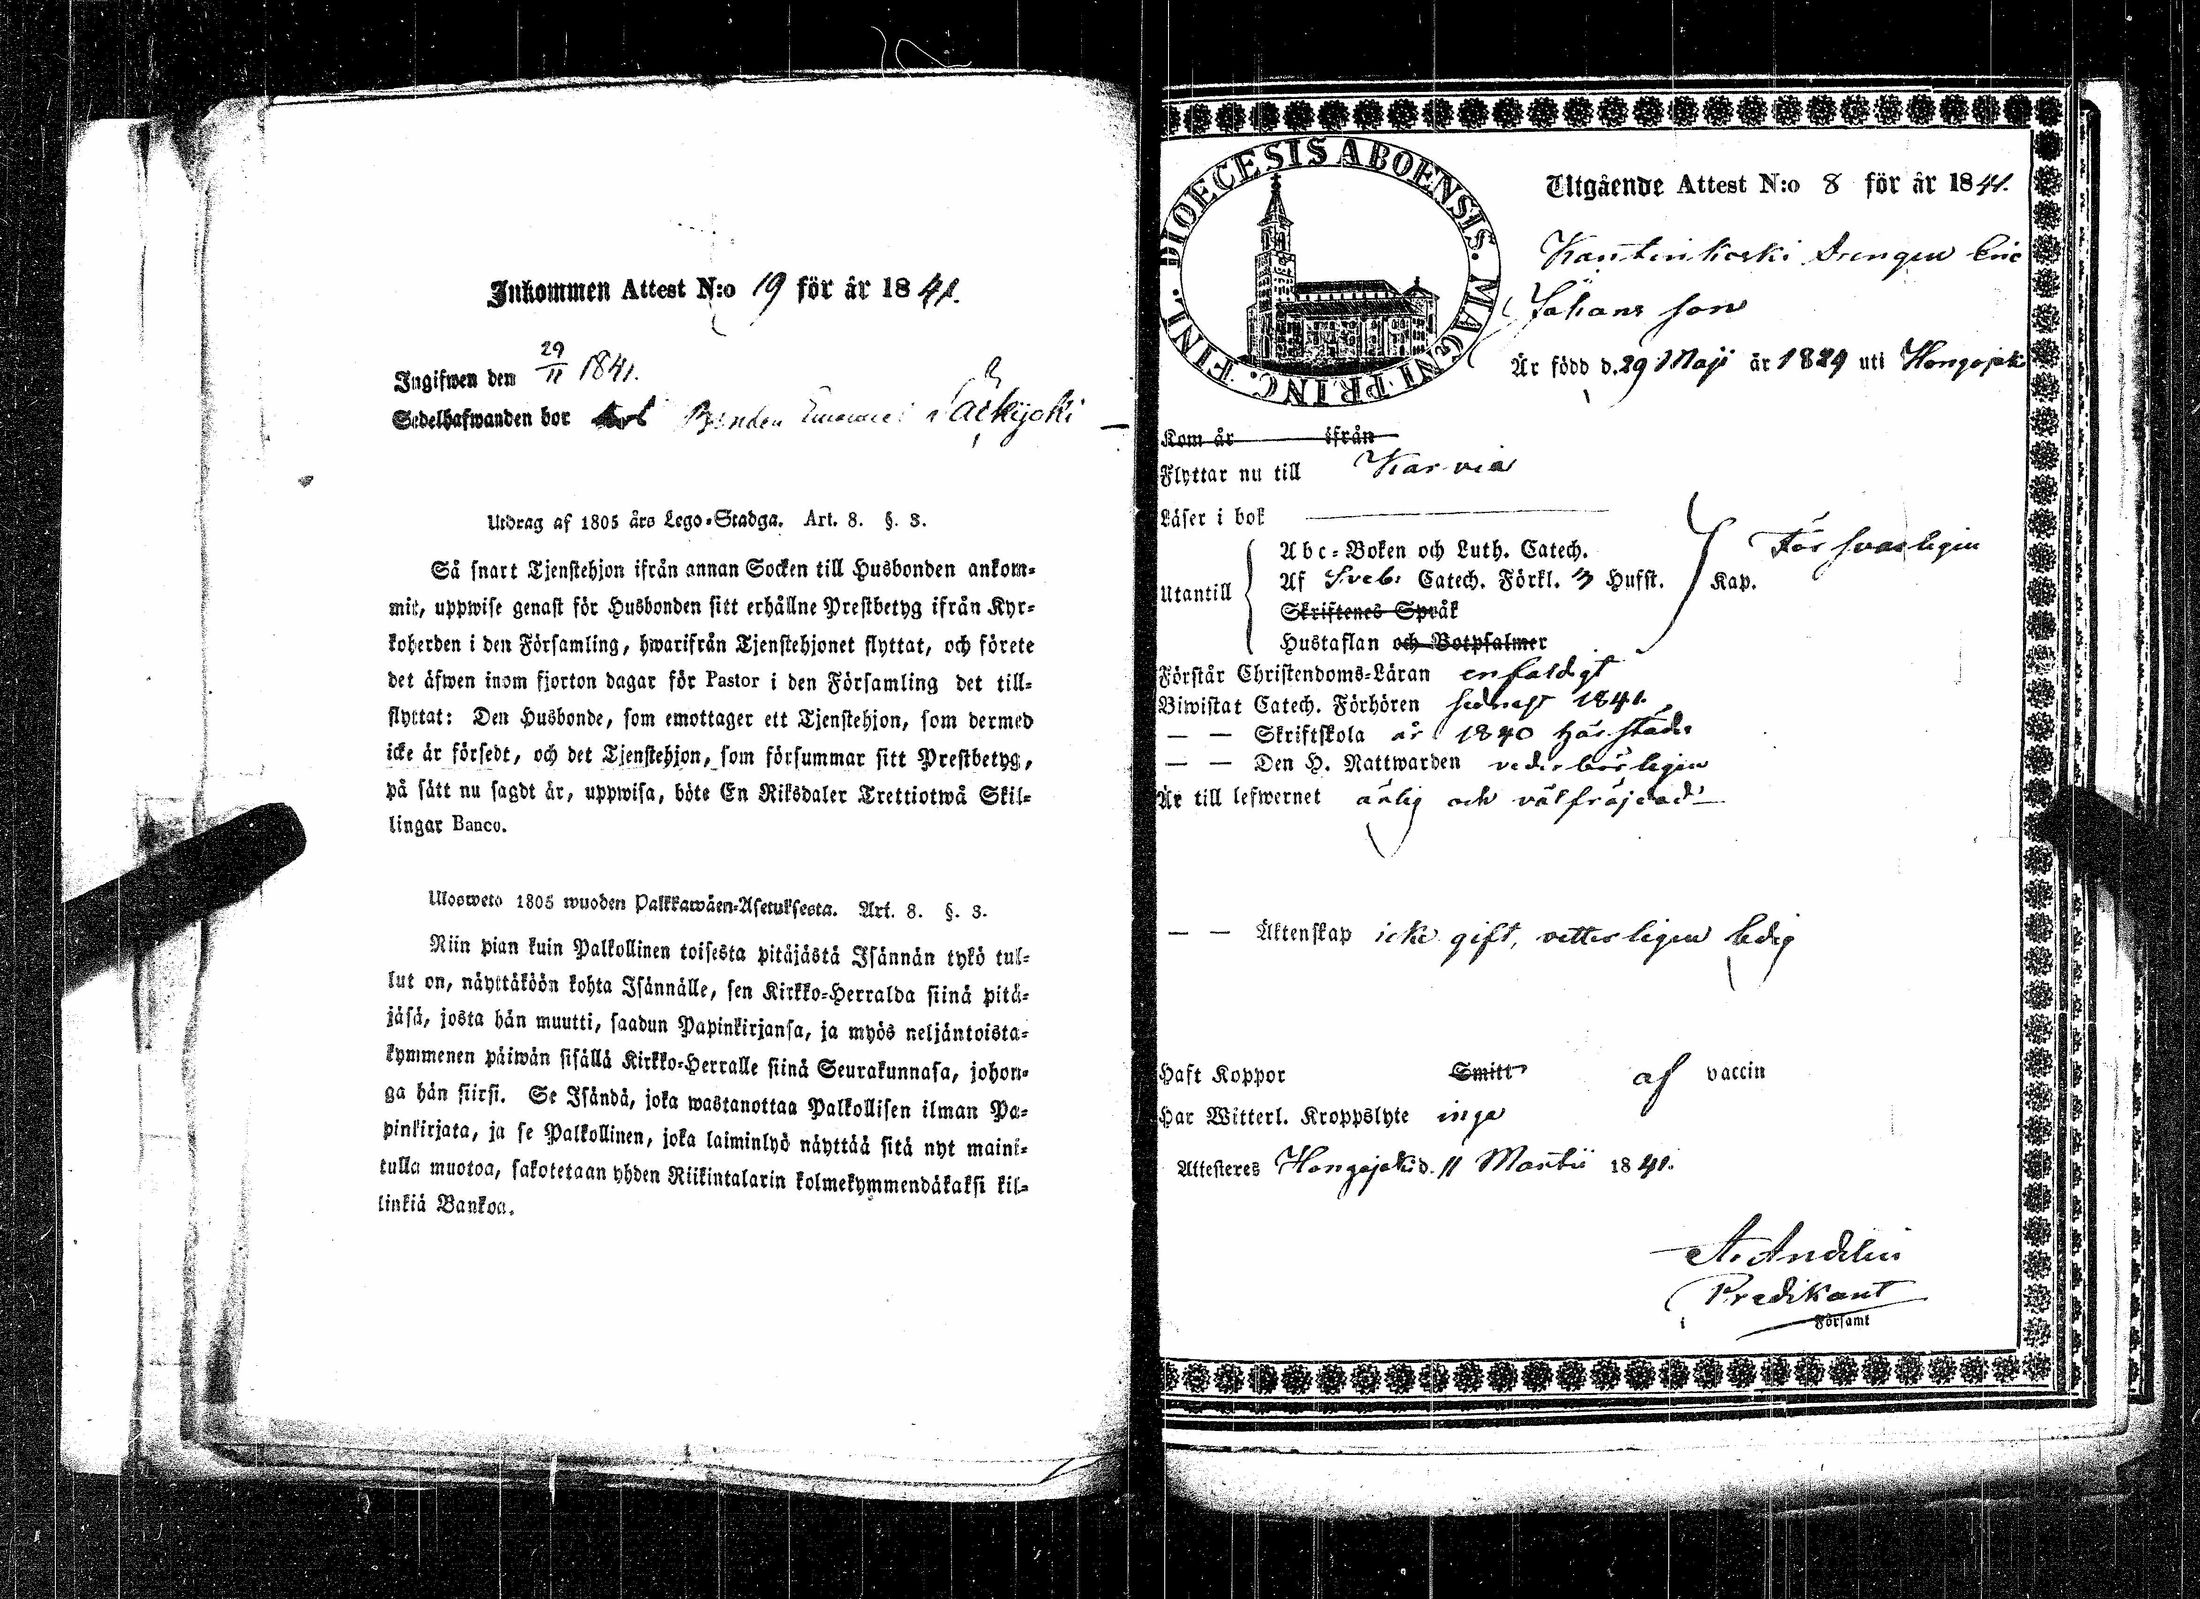 Inkommen Attest N:o 19 för år 1841.
Ingifwen den 29/11 1841.
Sedelhafwanden bor Bonden
Utdrag af 1805 års Lego-Stadga. Art. 8. §. 3.
Så snart Tjenstehjon ifrån annan Socken till Husbonden ankom-
mit, uppwise genast för Husbonden sitt erhållne Prestbetyg ifrån Kyr-
koherden i den Församling, hwarifrån Tjenstehjonet flyttat, och förete
det äfwen inom fjorton dagar för Pastor i den Församling det till-
flyttat: Den Husbonde, som emottager ett Tjenstehjon, som dermed
icke är försedt, och det Tjenstehjon, som försummar sitt Prestbetyg,
på sätt nu sagdt är, uppwisa, böte En Riksdaler Trettiotwå Skil-
lingar Banco.
Ulosweto 1805 wuoden Palkkawäen-Asetuksesta. Art. 8. §. 3.
Niin pian kuin Palkollinen toisesta pitäjästä Isännän tykö tul-
lut on, näyttäköön kohta Isännälle, sen Kirkko-Herralda siinä pitä-
jäsä, josta hän muutti, saadun Papinkirjansa, ja myös neljäntoista-
kymmenen päiwän sisällä Kirkko-Herralle siinä Seurakunnasa, johon-
ga hän siirsi. Se Isändä, joka wastanottaa Palkollisen ilman Pa-
pinkirjata, ja se Palkollinen, joka laiminlyö näyttää sitä nyt maini-
tulla muotoa, sakotetaan yhden Riikintalarin kolmekymmendäkaksi kil-
linkiä Bankoa.
DIOECESIS ABOENSIS. MAGNI PRINC. FINL.
Utgående Attest N:o 8 för år 1841.
Kantinkoski Drengen Eric
Johans son
Är född d. 29 Maji år 1824 uti Hongojoki
Kom år ifrån
Flyttar nu till Karvia
Läser i bok
Utantill
Abc-Boken och Luth. Catech.
Af Sveb: Catech. Förkl. 3 Hufst. Kap. Försvarligen
Skriftenes Språk
Hustaflan och Botpsalmer
Förstår Christendoms-Läran enfaldigt
Biwistat Catech. Förhören sednast 1841.
— — Skriftskola år 1840 härstädes
— — Den H. Nattwarden vederbörligen
Är till lefwernet ärlig och välfräjdad
— — Äktenskap icke gift, vetterligen ledig
Haft Koppor Smitt af vaccin
Har Witterl. Kroppslyte inga
Attesteres Hongojoki d. 11 Martii 1841.
A. Andelin
Predikant
i Församl